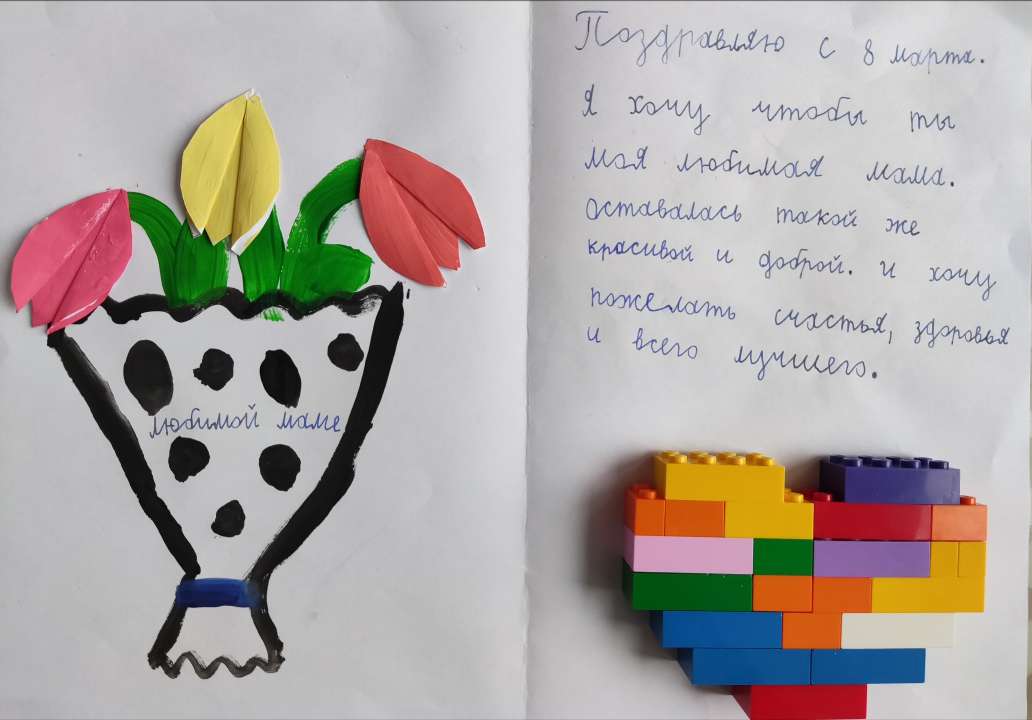 любимой маме
Поздравляю с 8 марта.
Я хочу чтобы ты
моя любимая мама.
оставалась такой же
красивой и доброй. и хочу
пожелать счастья, здоровья
и всего лучшего.